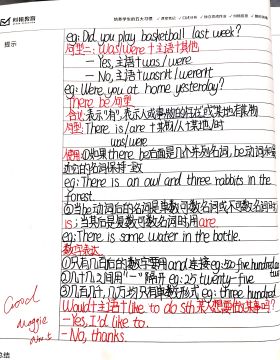 科桶教育
培养学生的五大习惯
提示
eg: Did you play basketball last week?
句型二: Was/were + 主语+其他
- Yes, 主语+was/were
- No, 主语+wasn't/weren't
eg: Were you at home yesterday?
There be 句型
含义: 表示"有",表示人或事物的存在或某地有某物
句型: There is/are + 某物/人+某地/时
was/were
使用: ①如果there be后面是几个并列名词, be动词和靠
近的名词保持一致
eg: There is an owl and three rabbits in the
forest.
②当be动词后的名词是单数可数名词或不可数名词时
is; 当其后是复数可数名词时用are
eg: There is some water in the bottle.
数字表达
①只有几百后的数字要用and连接 eg: 520 five hundred
②几十几之间用"-"隔开 eg: 25 twenty-five
③几百几千,几万均只用单数形式 eg: three hundred
Would+主语+like to do sth 某人想要做某事吗?
- Yes, I'd like to.
- No, thanks.
Good
Maggie
总结